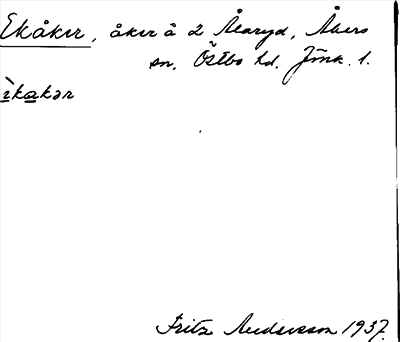 Ekåker, åker å 2 Åaryd, Åkers
sn. Östbo hd. Jönk. l.
ìkakər
Fritz Andersson 1937.